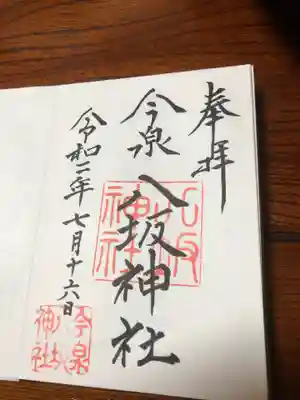 奉拝
今泉 八坂神社
八坂神社
令和二年七月十六日
今泉神社